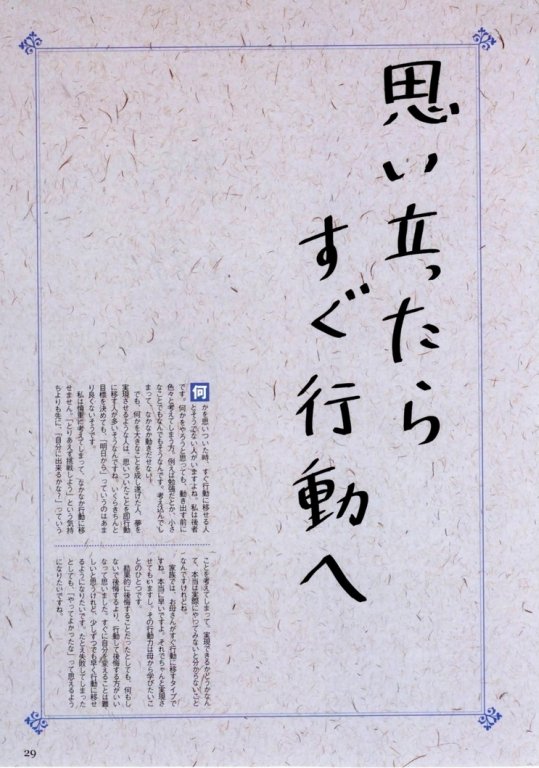 思い立ったら
すぐ行動へ
何かを思いついた時、すぐ行動に移せる人
とそうでない人がいますよね。私は後者
です。何かをやろうと思っても、動き出す前に
色々と考えてしまう方。例えば勉強だとか、小さ
なことでもなんでもそうなんです。考え込んでし
まって、なかなか動きだせない！
でも、何かを大きなことを成し遂げた人、夢を
実現させるような人は、思いついたことを即行動
に移す人が多いそうなんですね。いくらきちんと
目標を決めても、「明日から」っていうのはあま
り良くないそうです。
私は慎重に考えてしまって、なかなか行動に移
せません。「とりあえず挑戦しよう」という気持
ちよりも先に、「自分に出来るかな？」っていう
ことを考えてしまって、実現できるかどうかなん
て、本当は実際にやってみないと分からないこと
なんですけれどね。
家族では、お母さんがすぐ行動に移すタイプで
すね。本当に早いですよ。それでちゃんと実現さ
せてもいますし、その行動力は母から学びたいこ
とのひとつです。
結果的に後悔することだったとしても、何もし
ないで後悔するより、行動して後悔する方がいい
なって思いました。すぐに自分を変えることは難
しいと思うけれど、少しずつでも早く行動に移せ
るようになりたいです。たとえ失敗してしまった
としても、「やってよかったな」って思えるよう
になりたいですね。
29